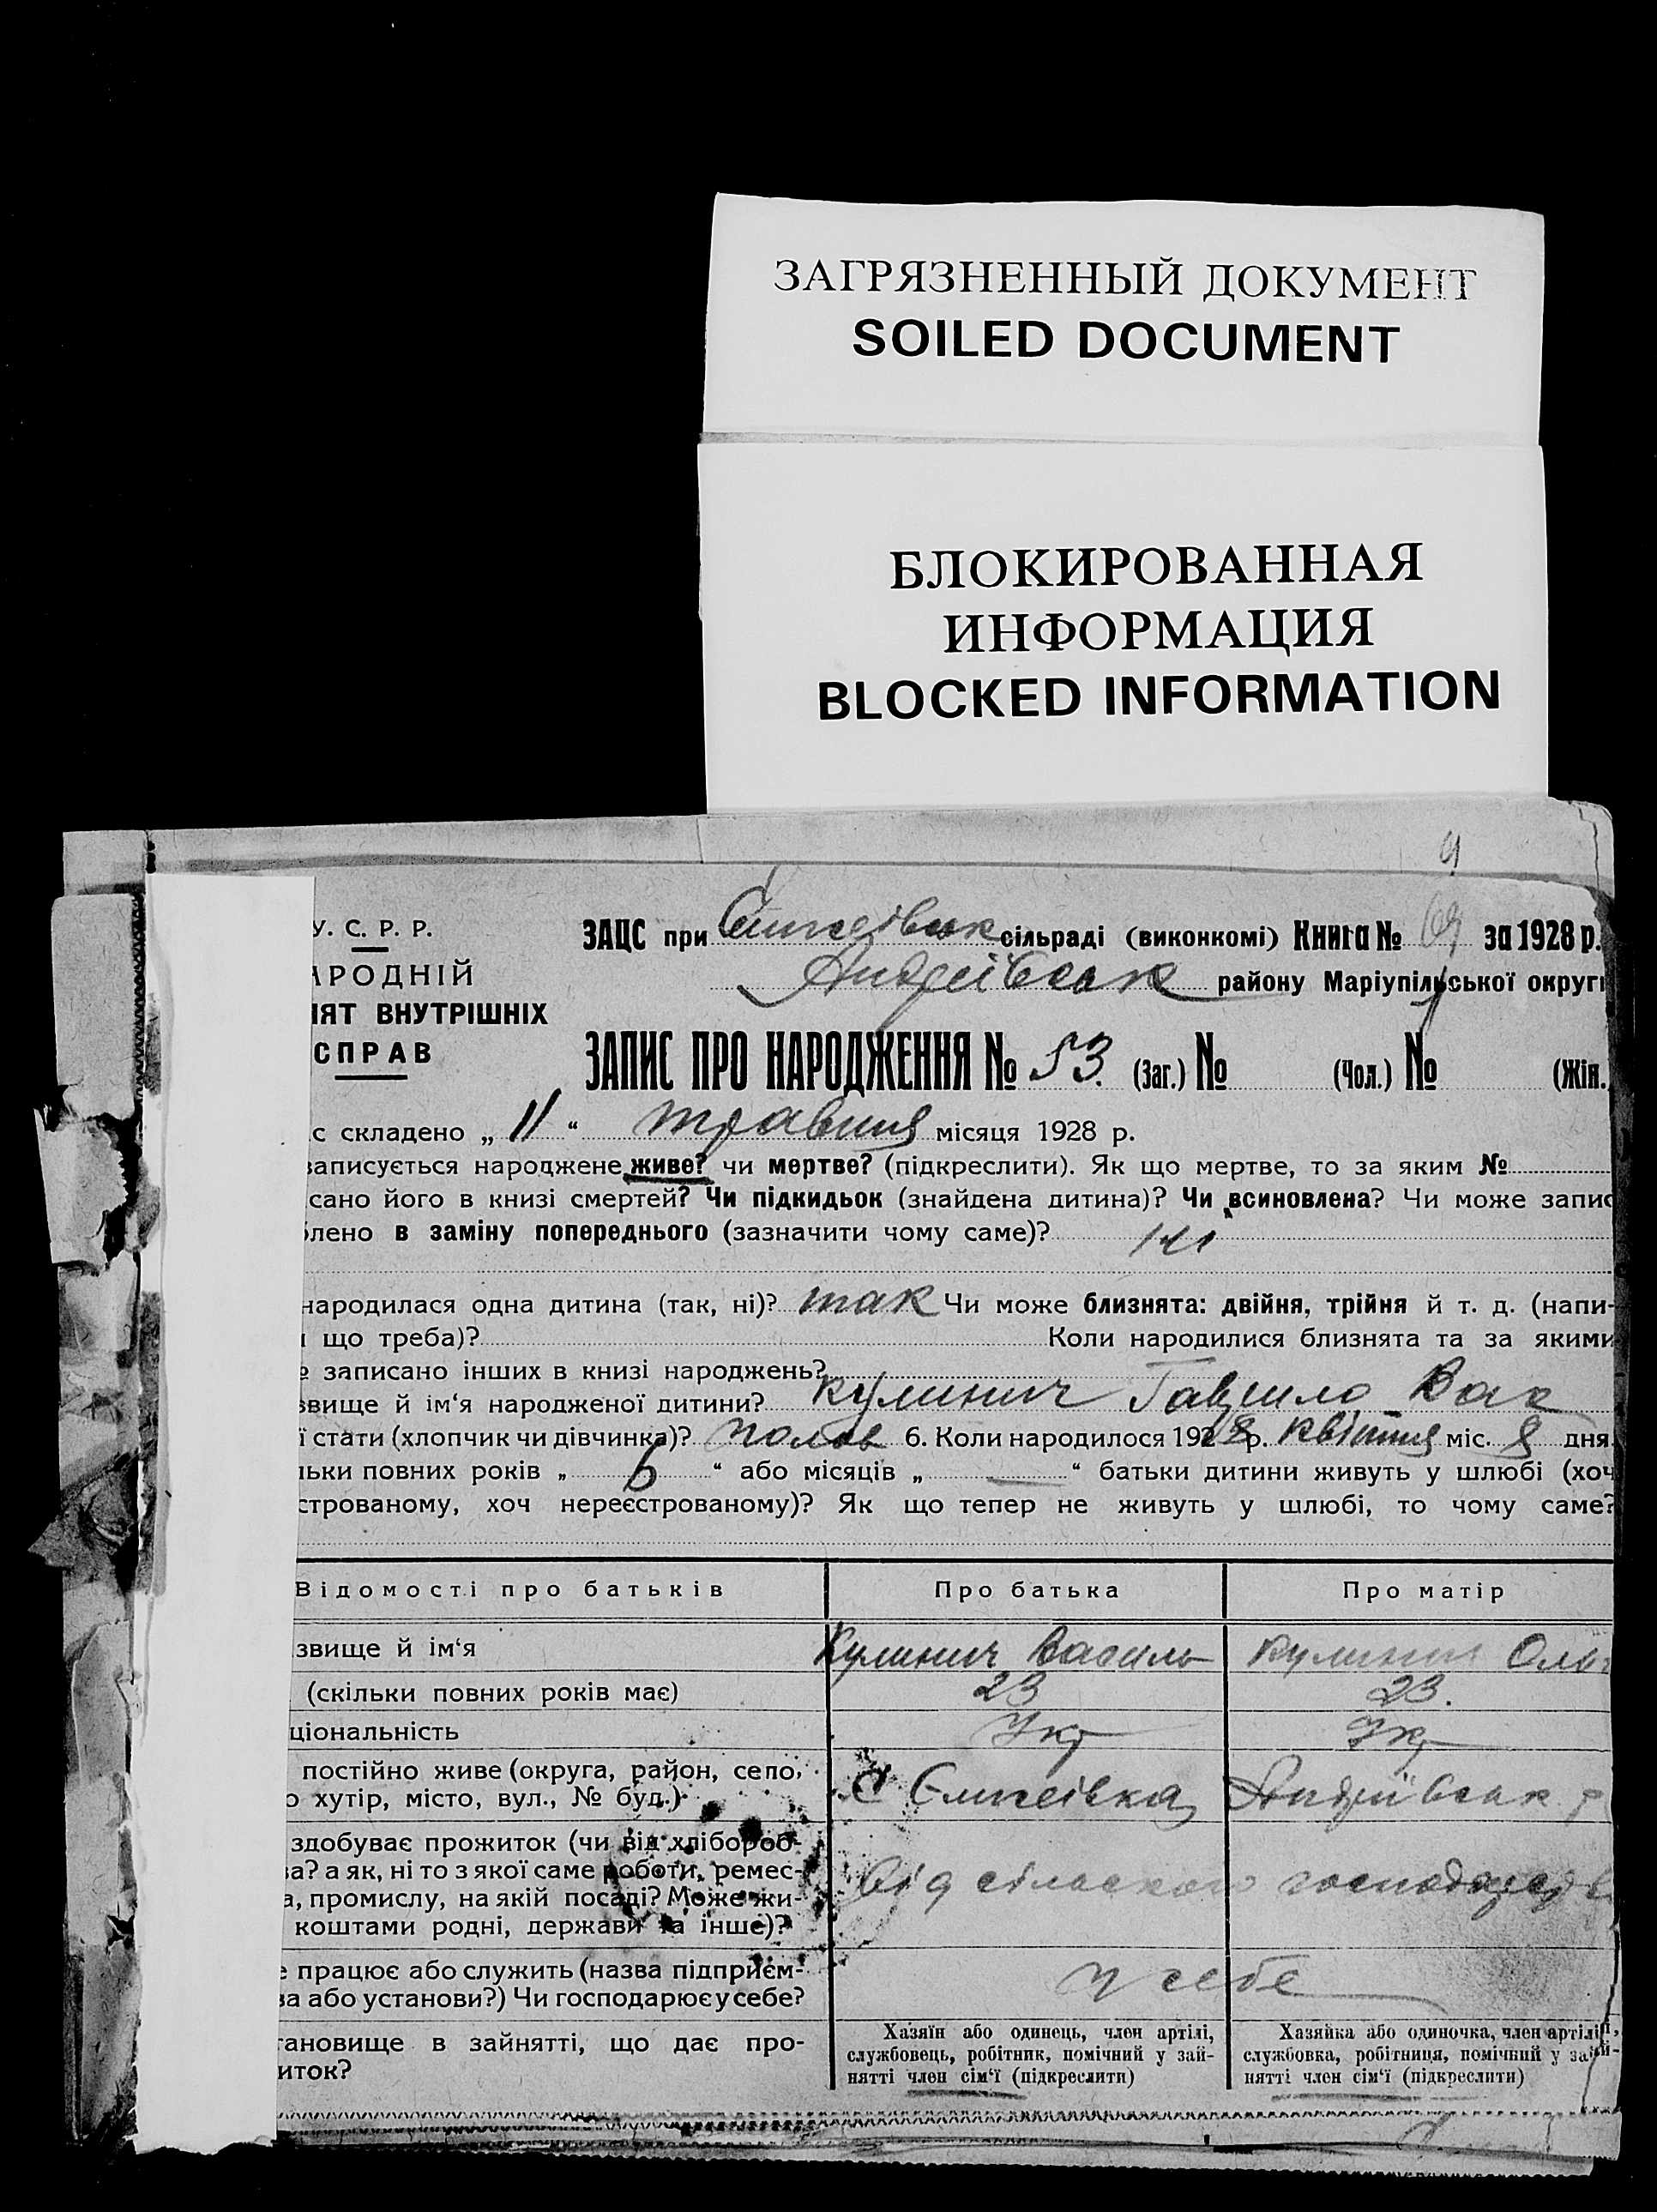 ЗАГРЯЗНЕННЫЙ ДОКУМЕНТ
SOILED DOCUMENT
БЛОКИРОВАННАЯ
ИНФОРМАЦИЯ
BLOCKED INFORMATION
У. С. Р. Р.
АРОДНІЙ
ІЯТ ВНУТРІШНІХ
СПРАВ
ЗАЦС при сільраді (виконкомі) Книга № за 1928 р.
Андріївськ району Маріупільської округи
ЗАПИС ПРО НАРОДЖЕННЯ № 53. (Заг.) № (Чол.) № (Жін.
с складено „ 11 “ травня місяця 1928 р.
записується народжене живе? чи мертве? (підкреслити). Як що мертве, то за яким №
сано його в книзі смертей? Чи підкидьок (знайдена дитина)? Чи всиновлена? Чи може запис
лено в заміну попереднього (зазначити чому саме)? ні
народилася одна дитина (так, ні)? так Чи може близнята: двійня, трійня й т. д. (напи-
що треба)? Коли народилися близнята та за якими
записано інших в книзі народжень?
звище й ім‘я народженої дитини? Кулинич Гаврило Вас
ї стати (хлопчик чи дівчинка)? 6. Коли народилося 1928 р. квітня міс. 8 дня.
льки повних років „ 6 “ або місяців „ — “ батьки дитини живуть у шлюбі (хоч
строваному, хоч нереєстрованому)? Як що тепер не живуть у шлюбі, то чому саме?
Відомості про батьків Про батька Про матір
звище й ім‘я Кулинич Василь Кулинич Ольг
(скільки повних років має) 23 23.
ціональність Укр Укр
постійно живе (округа, район, село,
о хутір, місто, вул., № буд.) с Андріївськ р
здобуває прожиток (чи від хлібороб-
ва? а як, ні то з якої саме роботи, ремес-
а, промислу, на якій посаді? Може жи-
коштами родні, держави та інше)? від сільского господарств
е працює або служить (назва підприєм-
ва або установи?) Чи господарює у себе? у себе
тановище в зайнятті, що дає про-
иток?
Хазяїн або одинець, член артілі,
службовець, робітник, помічний у зай-
нятті член сім‘ї (підкреслити)
Хазяйка або одиночка, член артілі,
службовка, робітниця, помічний у зай-
нятті член сім‘ї (підкреслити)